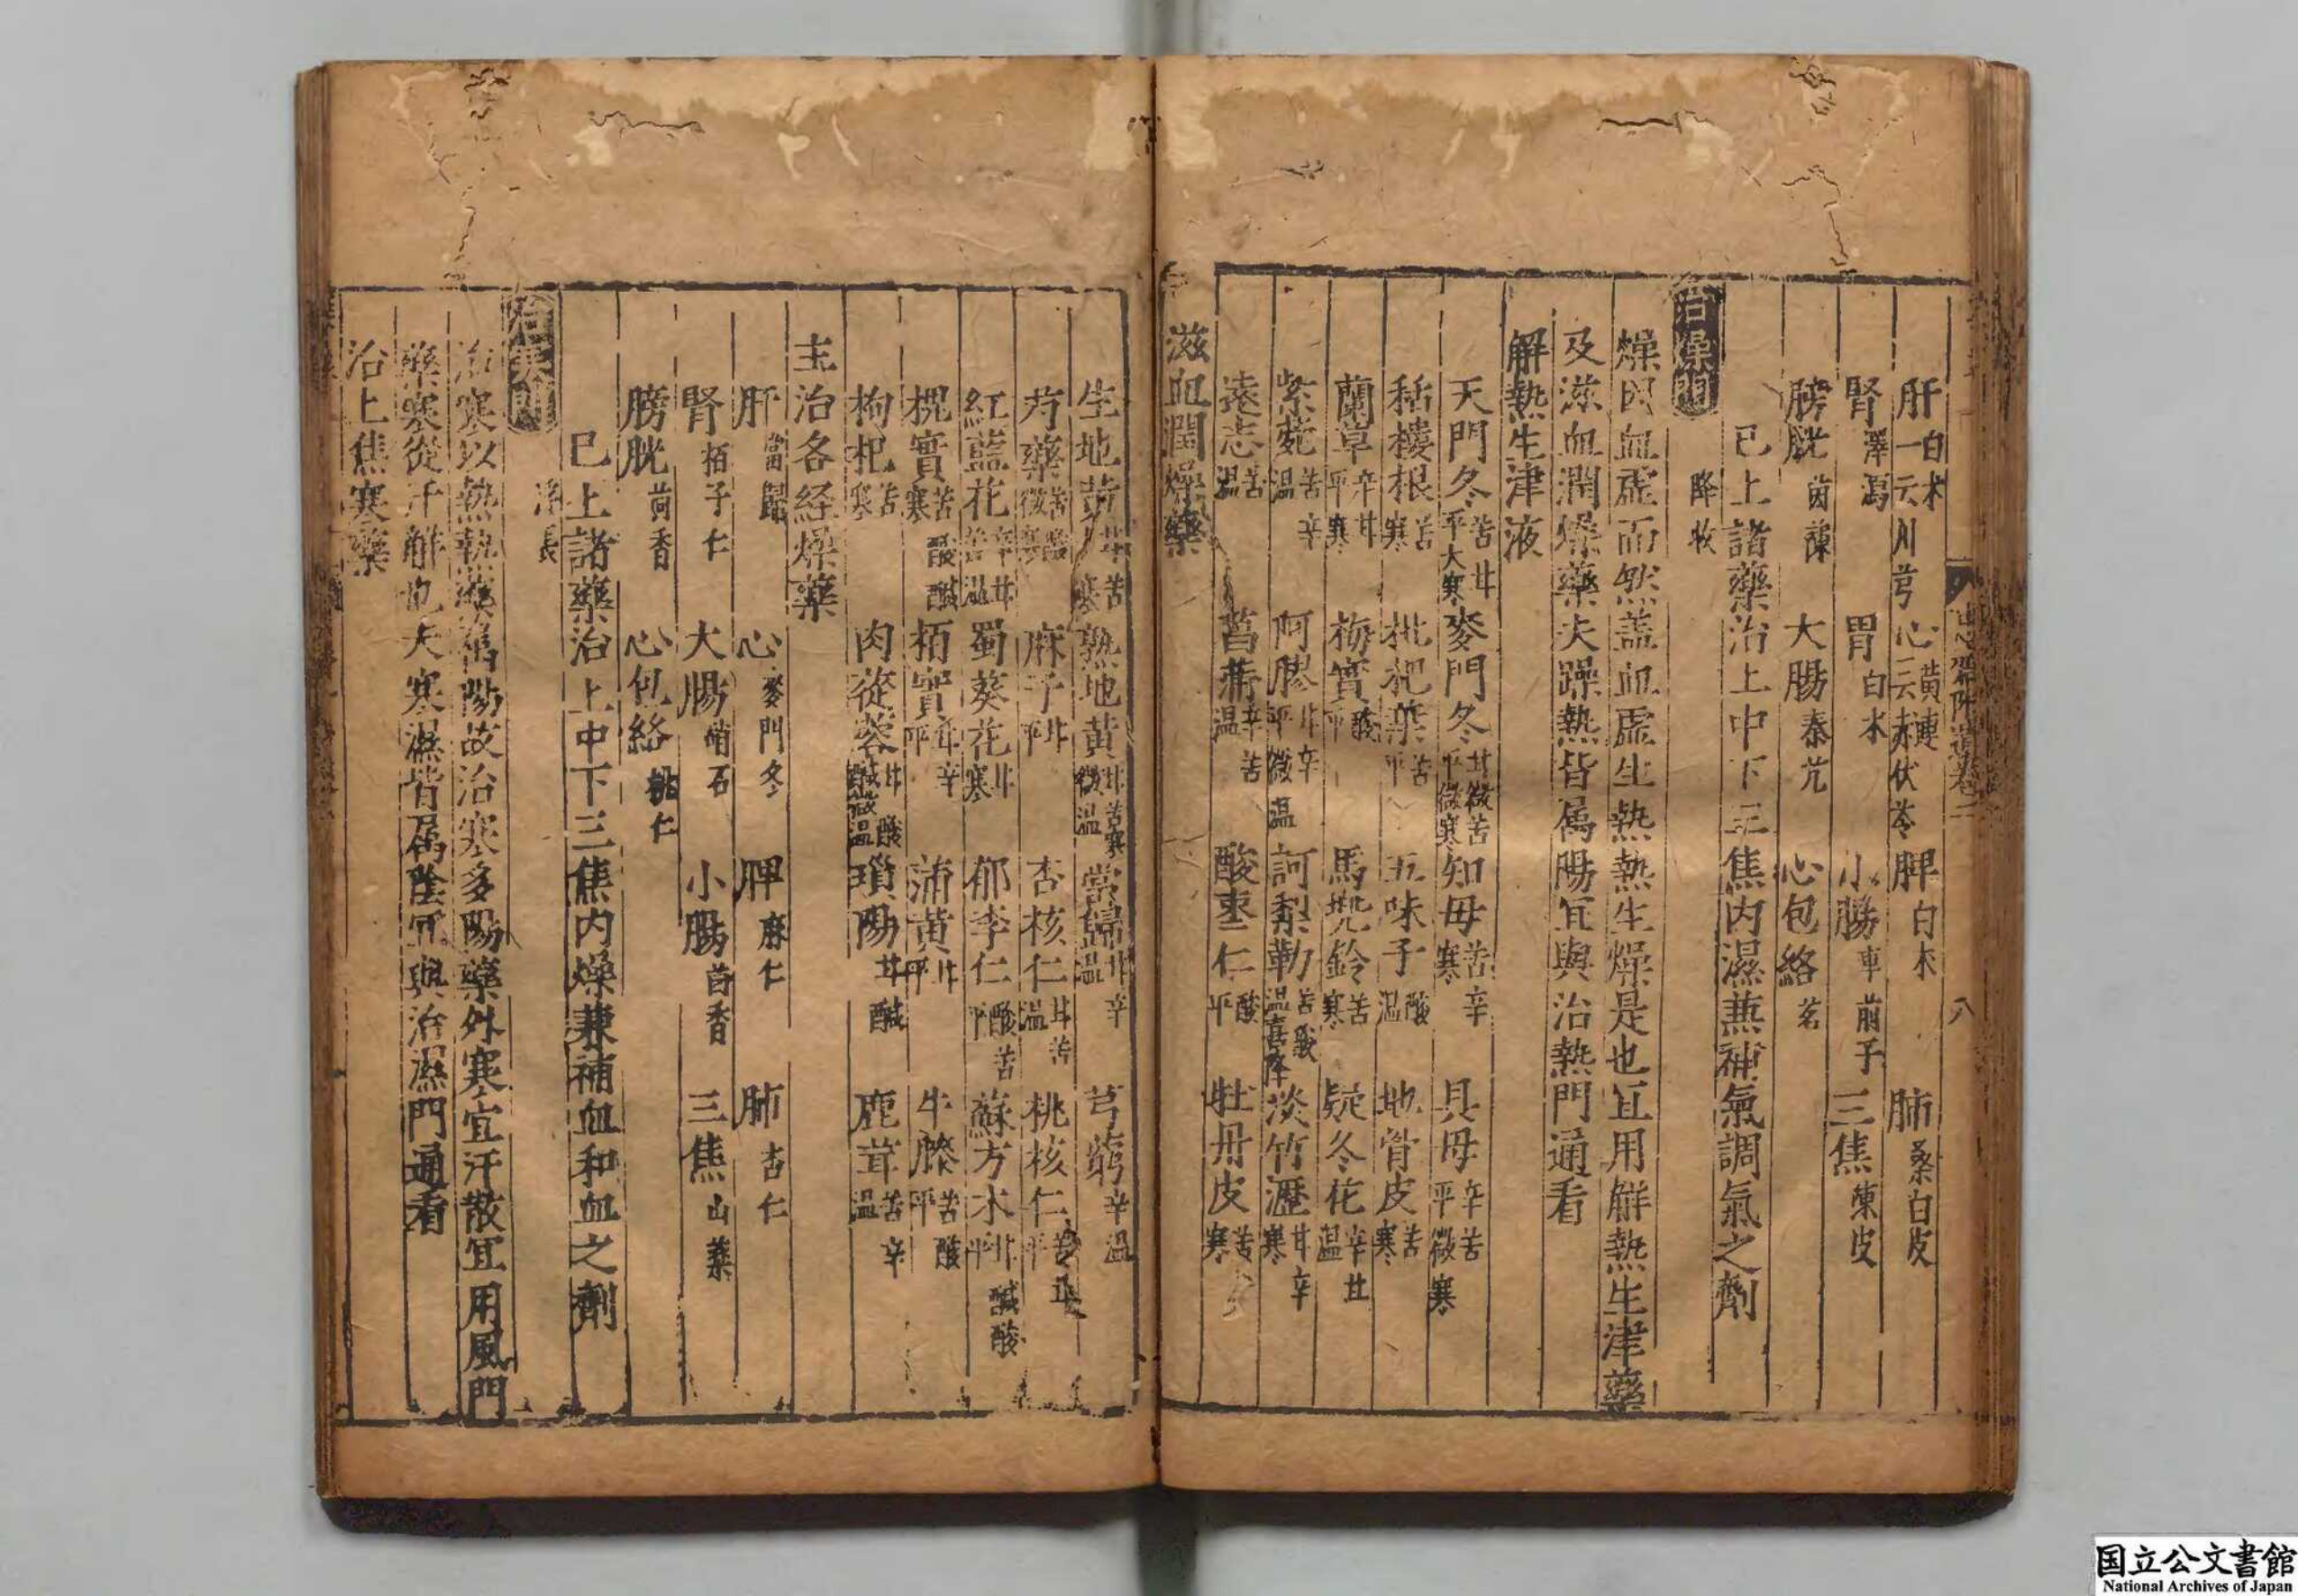 肝白术一云川芎 心黄連一云赤伏苓 脾白术 肺桑白皮
腎澤瀉 胃白术 小腸車前子 三焦陳皮
膀胱茵蔯 大腸秦艽 心包絡茗
已上諸藥治上中下三焦内濕兼補氣調氣之劑
治燥門 降收
燥因血虛而然盖血虛生熱熱生燥是也宜用解熱生津藥
及滋血潤燥藥夫躁熱皆属陽宜與治熱門通看
解熱生津液
天門冬苦甘平大寒 麥門冬甘微苦平微寒 知母苦辛寒 貝母辛苦平微寒
栝樓根苦寒 枇杷葉苦平 五味子酸温 地骨皮苦寒
蘭草辛甘平寒 梅實酸平 馬兠鈴苦寒 欵冬花辛甘温
紫菀苦辛温 阿膠甘辛平微温 訶梨勒苦温喜降 淡竹瀝甘辛寒
遠志苦温 菖蒲辛苦温 酸棗仁酸平 牡丹皮苦辛寒
滋血潤燥藥
生地黄甘苦寒 熟地黄甘苦寒微温 當歸甘辛温 芎藭辛温
芍藥苦酸微寒 麻子甘平 杏核仁甘苦温 桃核仁苦甘平
紅藍花辛甘苦温 蜀葵花甘寒 郁李仁酸苦平 蘇方木甘鹹酸平
槐實苦酸鹹寒 栢實甘辛平 蒲黄甘平 牛膝苦酸平
枸杞苦寒 肉從蓉甘酸鹹微温 瑣陽甘鹹 鹿茸苦辛温
主治各経燥藥
肝當歸 心麥門冬 脾麻仁 肺杏仁
腎栢子仁 大腸硝石 小腸茴香 三焦山藥
膀胱茴香 心包絡桃仁
已上諸藥治上中下三焦内燥兼補血和血之劑
治寒門 浮長
治寒以熱熱藥属陽故治寒多陽藥外寒宜汗散宜用風門
藥寒從汗解也夫寒濕皆属陰宜與治濕門通看
治上焦寒藥
八
国立公文書館
National Archives of Japan